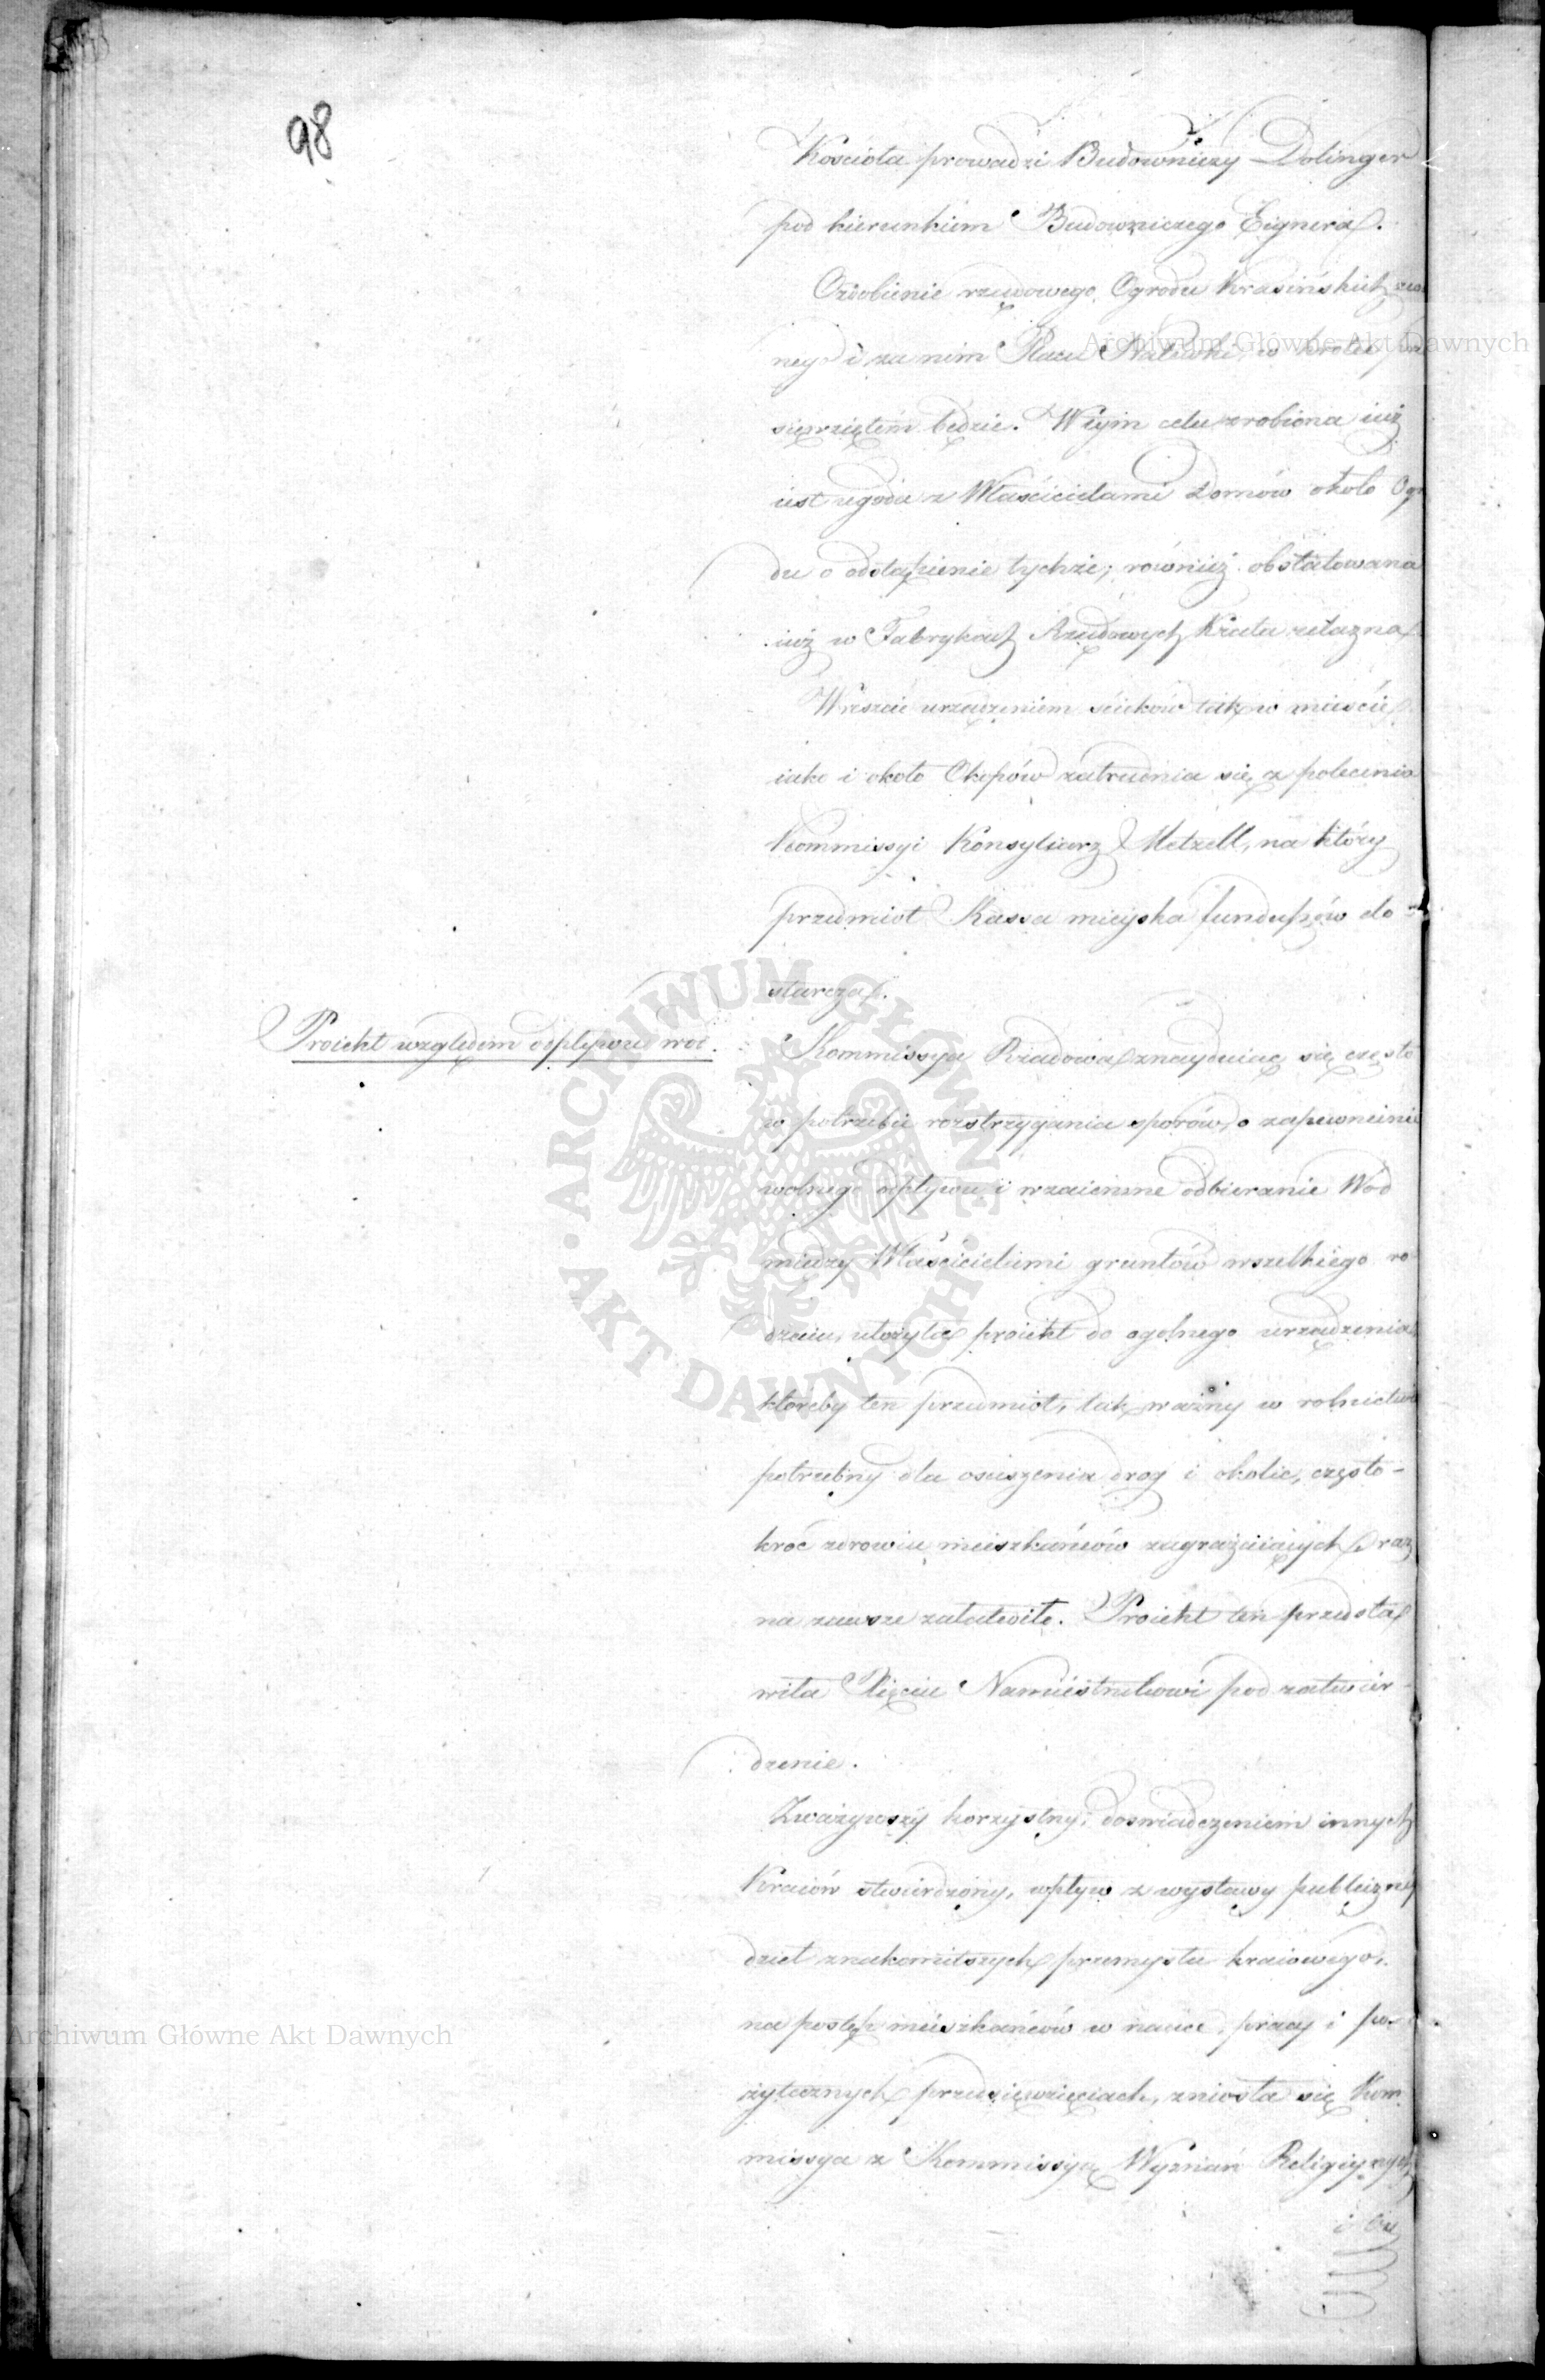 98
Kościoła prowadzi Budowniczy Dolinger
pod kierunkiem Budowniczego Eignera.
Ozdobienie rządowego Ogrodu Krasińskich
ney i za nim Placu Nalewki, w krotce
sięwziętem będzie. W tym celu zrobiona iuż
iest ugoda z Właścicielami Domów około Ogro
du o odstąpienie tychże; rownież obstalowana
iuż w Fabrykach Rządowych Krata żelazna.
Wreszcie urządzeniem ścieków tak w mieście
iako i około Okopów zatrudnia się z polecenia
Kommissyi Konsyliarz Metzell, na który
przedmiot Kassa mieyska funduszów do-
starcza.
Proiekt względem odpływu wód.
Kommissya Rządowa znayduiąc się często
w potrzebie rozstrzygania sporów, o zapewnienie
wolnego odpływu i wzaiemne odbieranie Wód
między Właścicielami gruntów wszelkiego ro
dzaiu, ułożyła proiekt do ogolnego urządzenia,
któreby ten przedmiot, tak ważny w rolnictwie
potrzebny dla osuszenia drog i okolic, często-
kroć zdrowiu mieszkańców zagrażaiących, raz
na zawsze załatwiło. Proiekt ten przedsta
wiła Xięciu Namiestnikowi pod zatwier-
dzenie.
Zważywszy korzystny, doswiadczeniem innych
Kraiów stwierdzony, wpływ z wystawy publiczney
dzieł znakomitszych przemysłu kraiowego,
na postęp mieszkańców w nauce, pracy i po-
żytecznych przedsięwzięciach, zniosła się Kom
missya z Kommissyą Wyznań Religiynych
i Oś
Archiwum Główne Akt Dawnych
Archiwum Główne Akt Dawnych
ARCHIWUM GŁÓWNE · AKT DAWNYCH ·